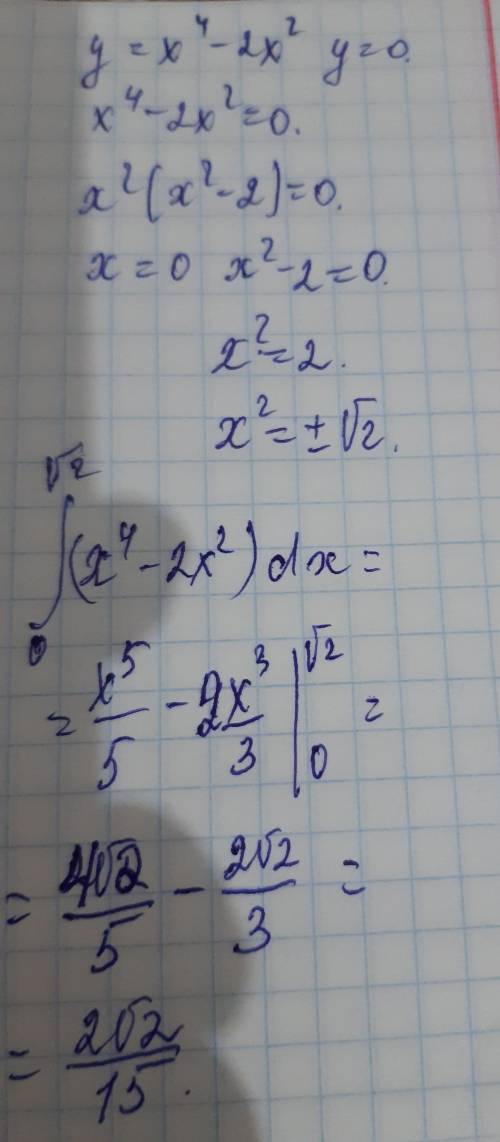 y = x⁴ - 2x² y = 0.
x⁴ - 2x² = 0.
x²(x² - 2) = 0.
x = 0 x² - 2 = 0.
x² = 2.
x² = ±√2.
∫₀^√2 (x⁴ - 2x²) dx =
= x⁵/5 - 2x³/3 |₀^√2 =
= 4√2/5 - 2√2/3 =
= 2√2/15.